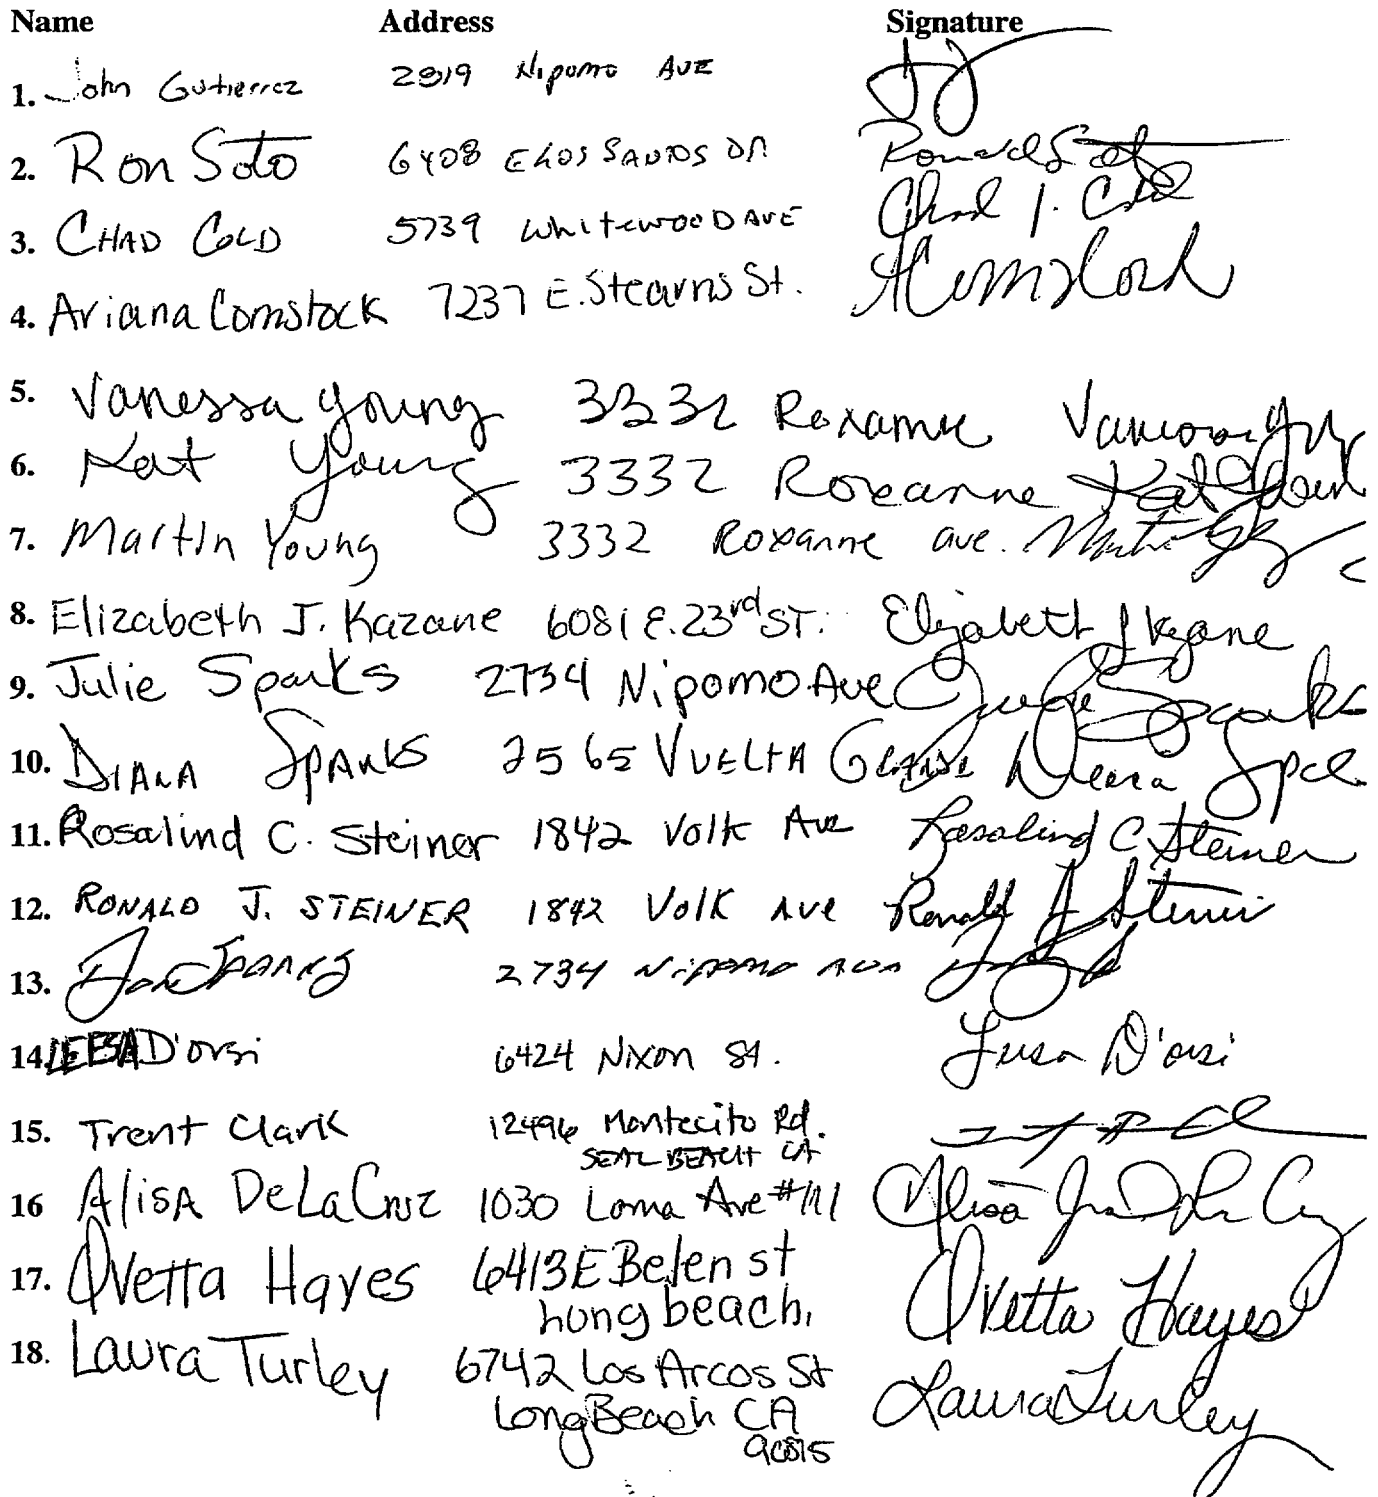 Name Address Signature
1. John Gutierrez 2819 Nipomo AVE
2. Ron Soto 6408 E LOS SANTOS DR Ronald Soto
3. CHAD COLD 5739 WhitewooD AVE Chad
4. Ariana Comstock 7237 E. Stearns St. AComstock
5. Vanessa Young 3332 Roxanne Vanessa
6. Kat Young 3332 Roxanne Kat Young
7. Martin Young 3332 Roxanne ave.
8. Elizabeth J. Kazane 6081 E. 23rd ST. Elizabeth J Kazane
9. Julie Sparks 2734 Nipomo Ave Julie Sparks
10. DIANA SPARKS 2565 VUELTA GRANDE Diana
11. Rosalind C. Steiner 1842 Volk Ave Rosalind C Steiner
12. RONALD J. STEINER 1842 Volk Ave Ronald J Steiner
13. 2734 Nipomo
14. D'orsi 6424 Nixon St. Lisa D'orsi
15. Trent Clark 12496 Montecito Rd.
SEAL BEACH CA
16 AlisA DeLaCruz 1030 Loma Ave #111 Alisa
17. Ovetta Hayes 6413 E Belen st Ovetta Hayes
Long beach,
18. Laura Turley 6742 Los Arcos St Laura Turley
Long Beach CA
90815